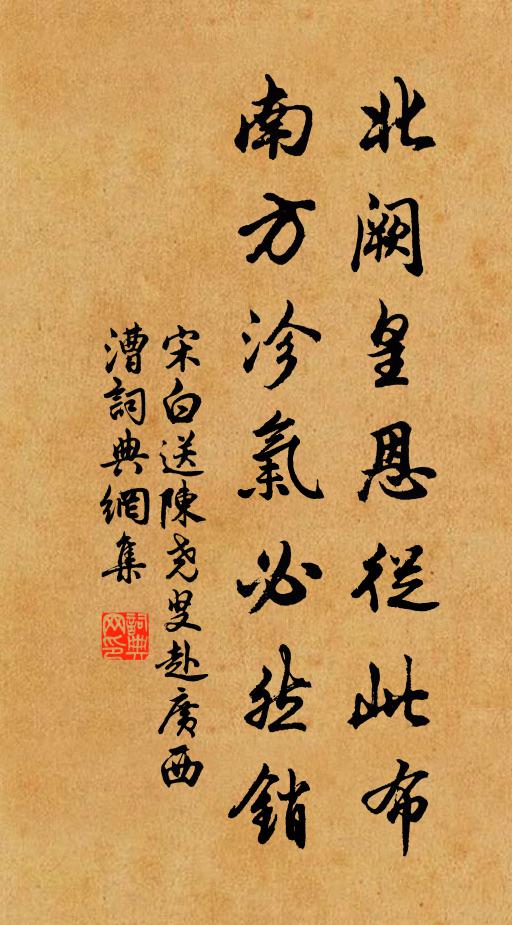 北闕皇恩從此布
南方沴氣必然銷
宋白送陳堯叟赴廣西
漕詞典網集
詞典
网印